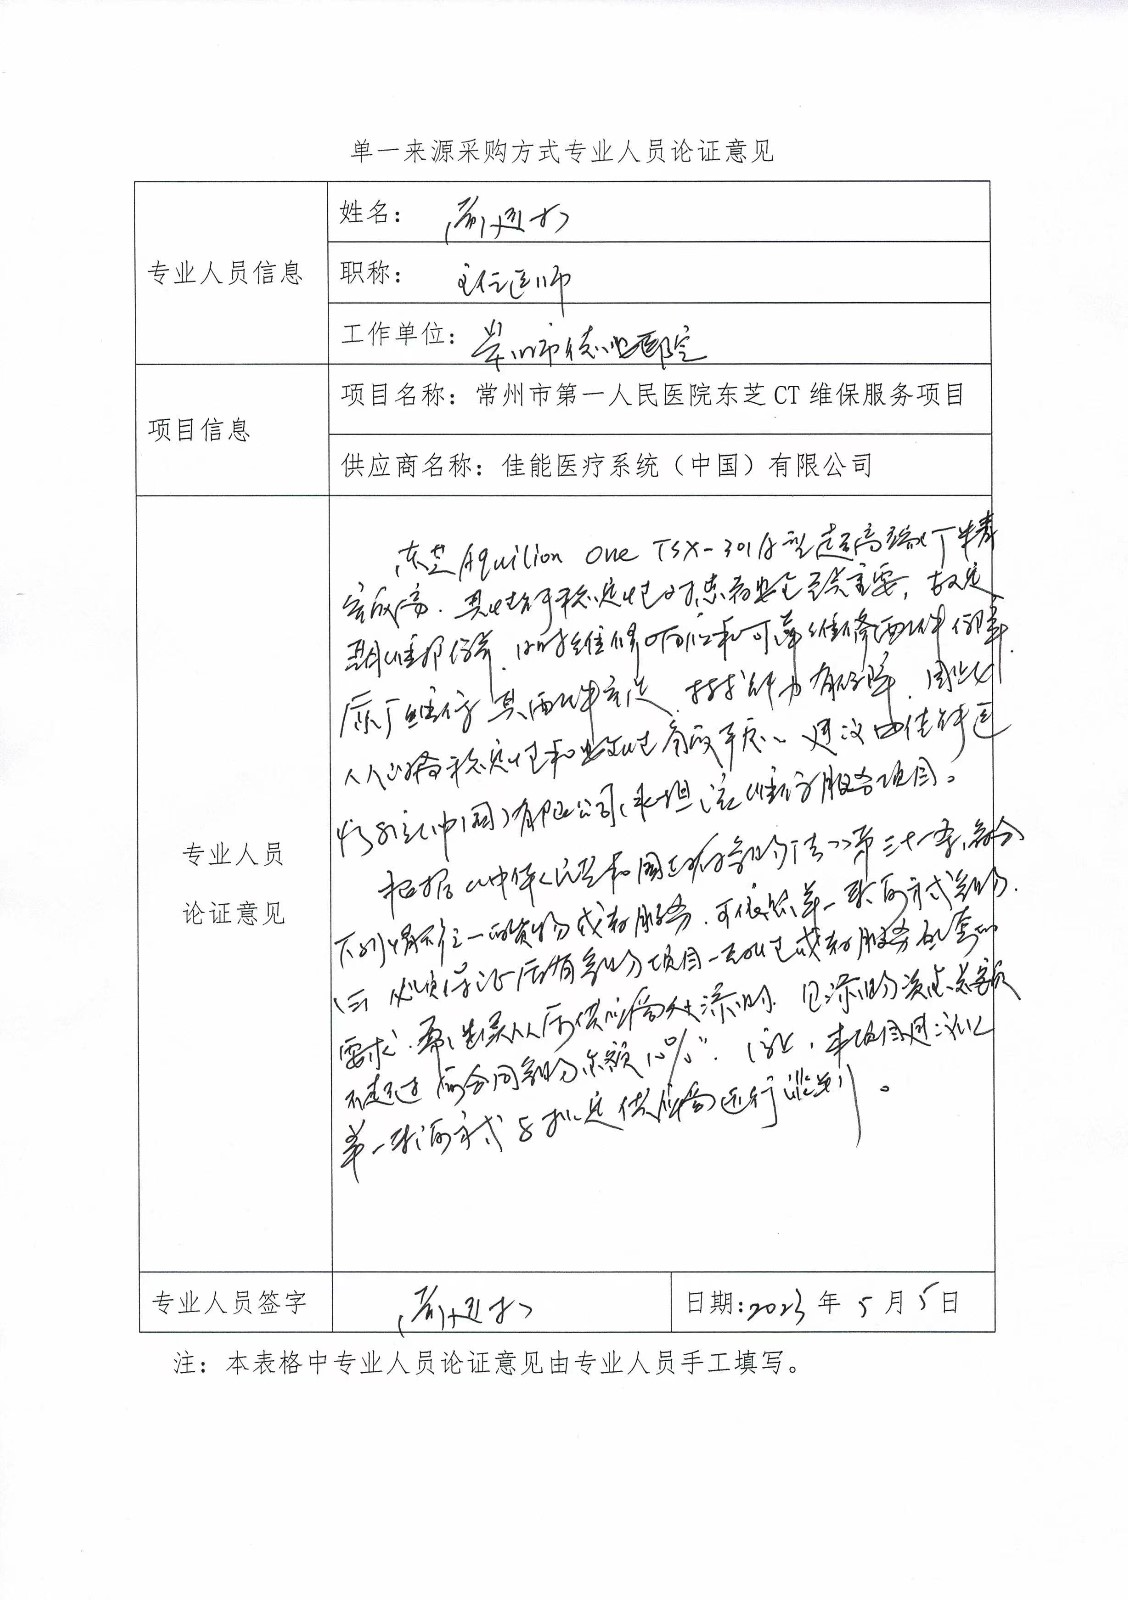 单一来源采购方式专业人员论证意见
专业人员信息
姓名：
职称： 主任医师
工作单位： 常州市德安医院
项目信息
项目名称：常州市第一人民医院东芝CT维保服务项目
供应商名称：佳能医疗系统（中国）有限公司
专业人员
论证意见
东芝Aquilion One TSX-301A型超高端CT精
密度高．其性能稳定性对患者安全至关重要，故定
期维护保养．及时维修响应和可靠维修配件保障．
原厂维保其配件充足．技术能力有保障．
稳定性和安全性 建议由佳能医
疗系统(中国)有限公司承担该维保服务项目。
根据《中华人民共和国政府采购法》第三十一条：符合
下列情形之一的货物或者服务．可依照单一来源方式采购．
(三) 必须保证原有采购项目一致性或者服务配套的
要求．需继续从原供应商处添购．且添购资金总额
不超过原合同采购金额10%”． 本项目建议以
单一来源方式与拟定供应商进行谈判。
专业人员签字
日期:2023年5月5日
注：本表格中专业人员论证意见由专业人员手工填写。